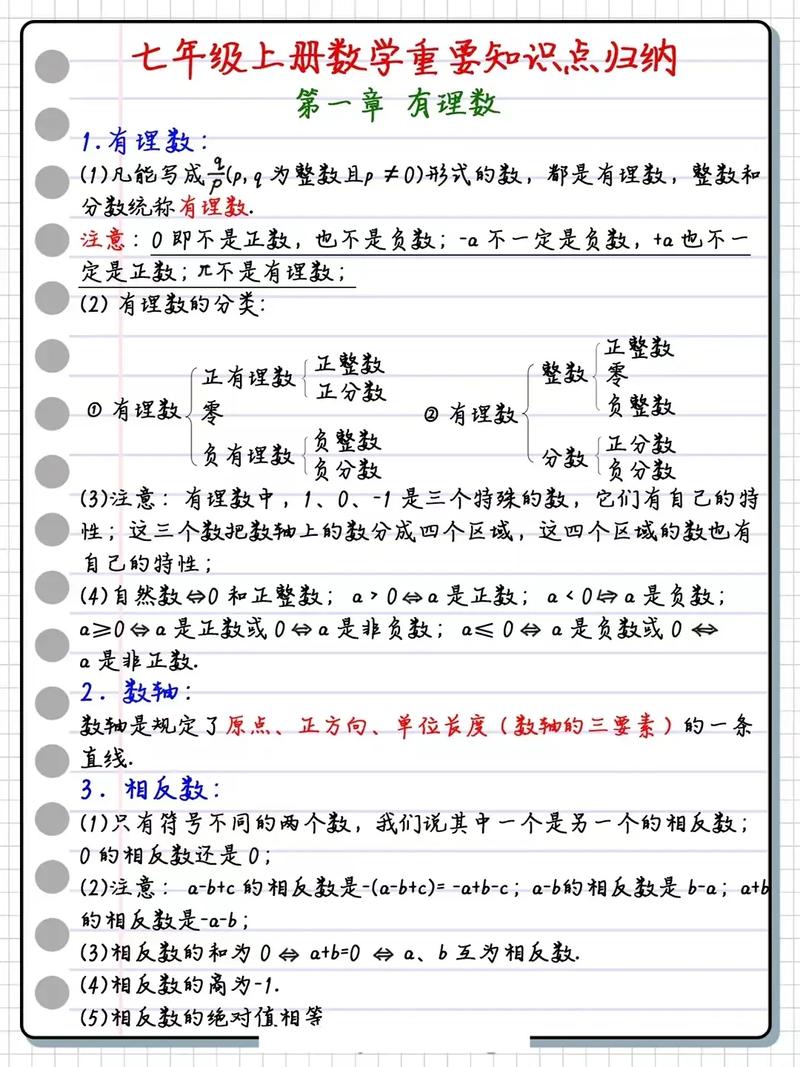 七年级上册数学重要知识点归纳
第一章 有理数
1.有理数:
(1)凡能写成q/p(p,q为整数且p≠0)形式的数，都是有理数，整数和
分数统称有理数.
注意：0即不是正数，也不是负数；-a不一定是负数，+a也不一
定是正数；π不是有理数；
(2) 有理数的分类:
① 有理数 正有理数 正整数 正分数 零 负有理数 负整数 负分数
② 有理数 整数 正整数 零 负整数 分数 正分数 负分数
(3)注意：有理数中，1、0、-1是三个特殊的数，它们有自己的特
性；这三个数把数轴上的数分成四个区域，这四个区域的数也有
自己的特性；
(4)自然数⇔0和正整数；a>0⇔a是正数；a<0⇔a是负数；
a≥0⇔a是正数或0⇔a是非负数；a≤0⇔a是负数或0⇔
a是非正数.
2. 数轴:
数轴是规定了原点、正方向、单位长度（数轴的三要素）的一条
直线.
3. 相反数:
(1)只有符号不同的两个数，我们说其中一个是另一个的相反数；
0的相反数还是0；
(2)注意：a-b+c的相反数是-(a-b+c)= -a+b-c；a-b的相反数是b-a；a+b
的相反数是-a-b；
(3)相反数的和为0⇔a+b=0⇔a、b互为相反数.
(4)相反数的商为-1.
(5)相反数的绝对值相等